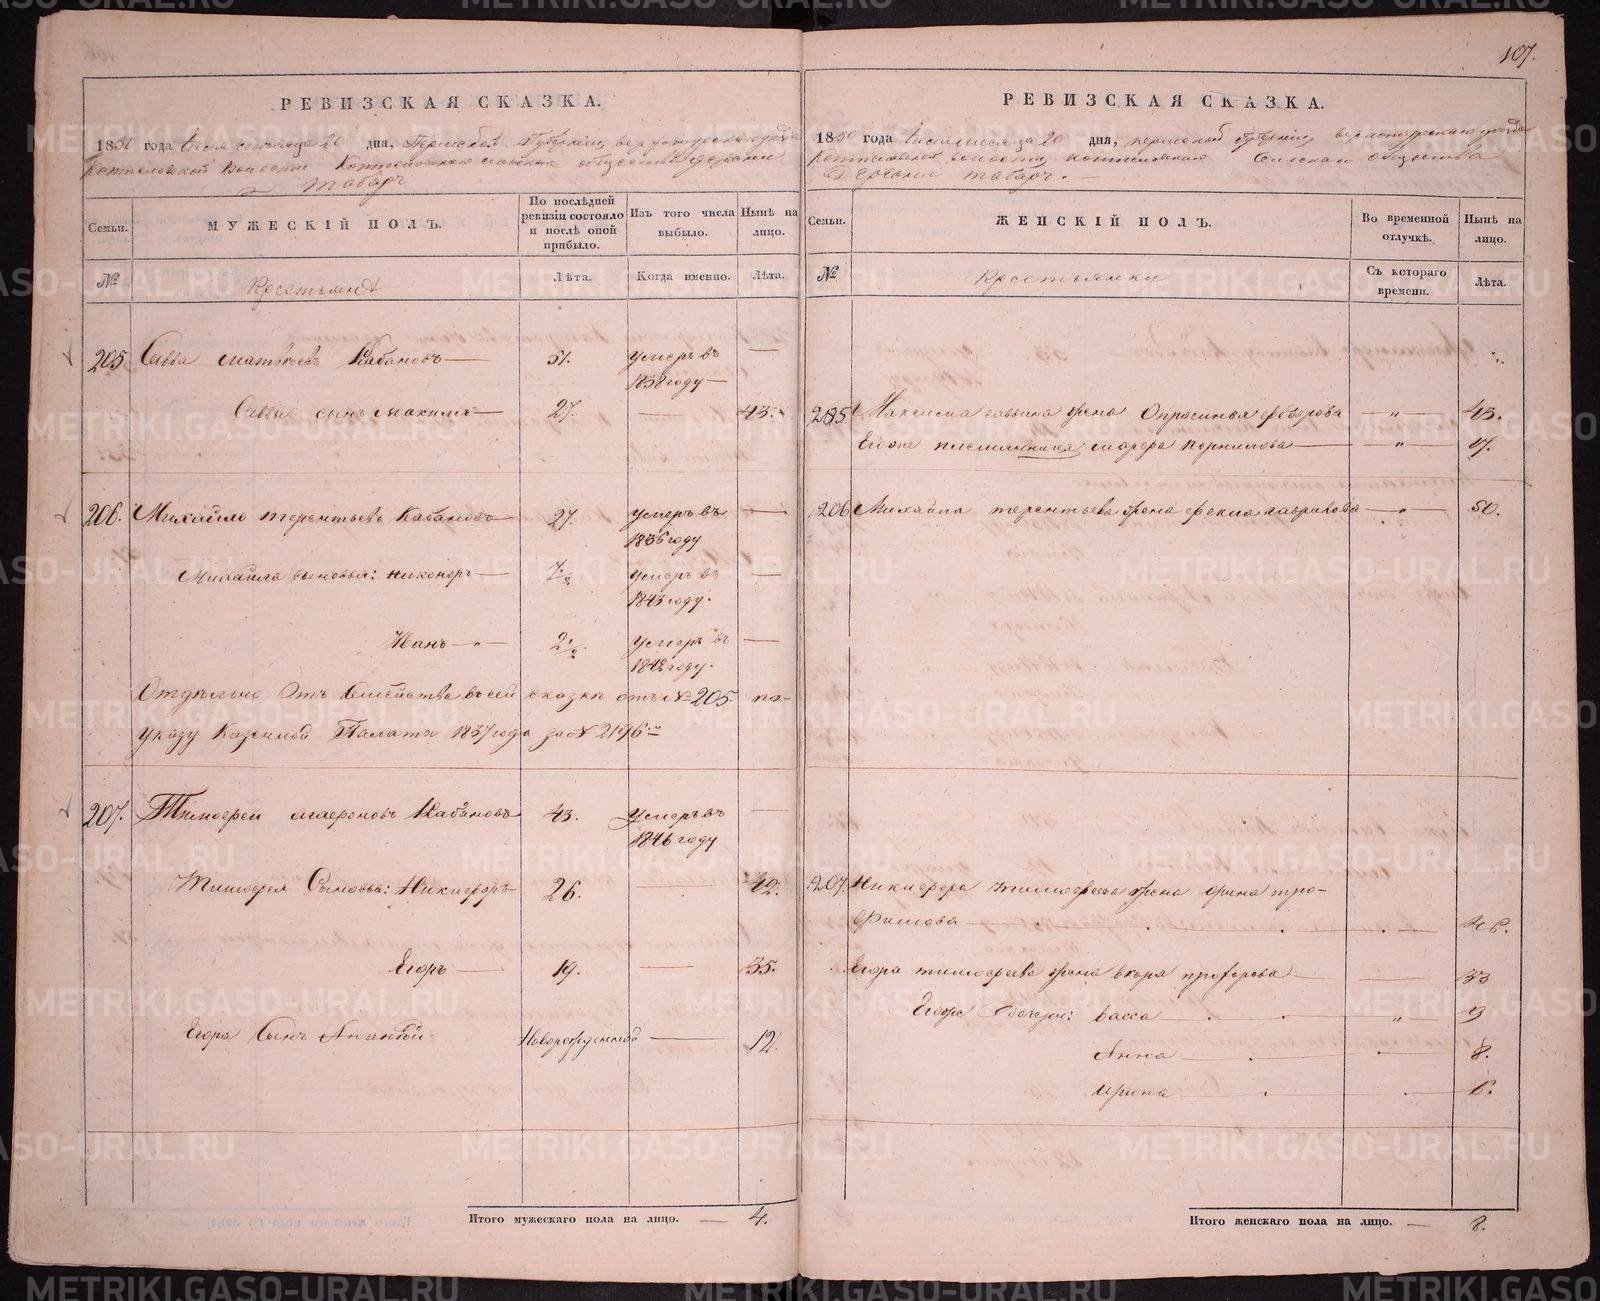 107.
РЕВИЗСКАЯ СКАЗКА.
1850 года Іюня мѣсяца 20 дня, Пермской Губерніи Верхотурскаго уѣзда
волости сельскаго общества деревни
Табаръ
Семьи. МУЖЕСКІЙ ПОЛЪ. По послѣдней ревизіи состояло и послѣ оной прибыло. Изъ того числа выбыло. Нынѣ на лицо.
№ Крестьянѣ Лѣта. Когда именно. Лѣта.
205 Савва Матвѣевъ Кабановъ — 51. умеръ въ 1838 году — —
Саввы сынъ Макимъ — 27. — 43.
206. Михайло Терентьевъ Кабановъ — 27. умеръ въ 1836 году —
Михайла сыновья: Никоноръ — умеръ въ 1843 году. —
Иванъ — " — умеръ въ 1842 году. —
Отдѣльно отъ семейства въ сей сказкѣ отъ № 205. по
указу Казенной Палаты 1837 года за № 2196
207. Тимофей Кабановъ 43. умеръ въ 1846 году —
Тимофея Сыновья: Никифоръ 26. — 42.
Егоръ — 19. — 35.
Егора Сынъ Ананій Новорожденной — 12.
Итого мужескаго пола на лицо. — 4.
РЕВИЗСКАЯ СКАЗКА.
1850 года Іюня мѣсяца 20 дня, Пермской губерніи Верхотурскаго уѣзда
волости Сельскаго общества
Деревни Табаръ. —
Семьи. ЖЕНСКІЙ ПОЛЪ. Во временной отлучкѣ. Нынѣ на лицо.
№ Крестьянки Съ котораго времени. Лѣта.
205. Максима Саввина жена Опросинья Федорова — " — 43.
Егоже племянница Марфа Корнилова — " — 17.
206 Михайла Терентьева жена Фекла Гаврилова — " — 50.
207. Никифора Тимофеева жена Ирина Тро-
фимова —
Егора Тимофеева жена Прохорова — 33
Егора Дочери: Васса — " — 9
Анна — 8.
Ирина — 6.
Итого женскаго пола на лицо. — 8.